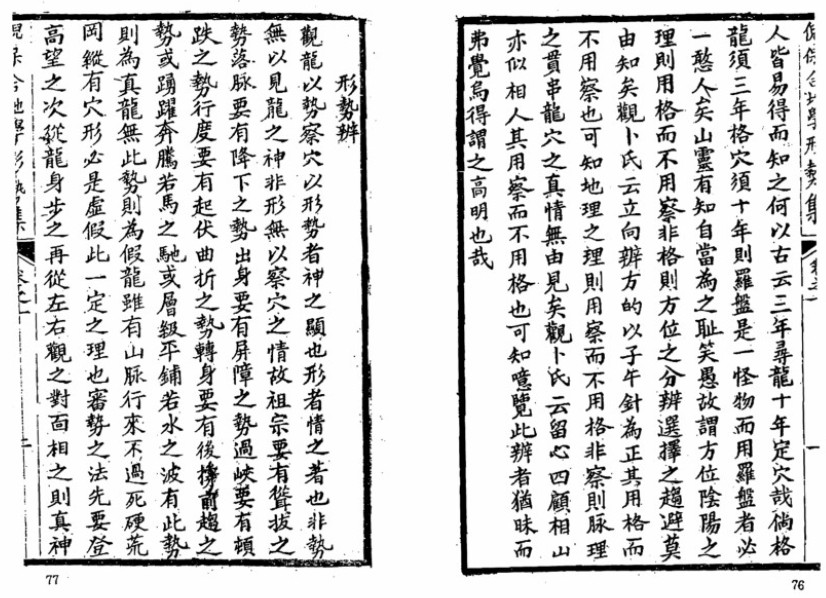 人皆易得而知之何以古云三年尋龍十年定穴哉倘格
龍須三年格穴須十年則羅盤是一怪物而用羅盤者必
一憨人矣山靈有知自當為之恥笑愚故謂方位陰陽之
理則用格而不用察非格則方位之分辨選擇之趨避莫
由知矣觀卜氏云立向辨方的以子午針為正其用格而
不用察也可知地理之理則用察而不用格非察則脉理
之貫串龍穴之真情無由見矣觀卜氏云留心四顧相山
亦似相人其用察而不用格也可知噫覽此辨者猶昧而
弗覺烏得謂之高明也哉
地學形勢集
卷之一
一
76
形勢辨
觀龍以勢察穴以形勢者神之顯也形者情之著也非勢
無以見龍之神非形無以察穴之情故祖宗要有聳拔之
勢落脉要有降下之勢出身要有屏障之勢過峽要有頓
跌之勢行度要有起伏曲折之勢轉身要有後撐前趨之
勢或踴躍奔騰若馬之馳或層級平鋪若水之波有此勢
則為真龍無此勢則為假龍雖有山脉行來不過死硬荒
岡縱有穴形必是虛假此一定之理也審勢之法先要登
高望之次從龍身步之再從左右觀之對面相之則真神
地學形勢集
卷之一
二
77